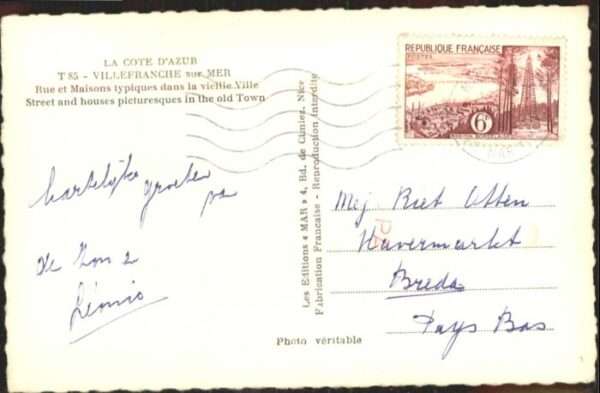 LA COTE D'AZUR
T 85 - VILLEFRANCHE SUR MER
Rue et Maisons typiques dans la vieille Ville
Street and houses picturesques in the old Town
hartelijke groeten
de
Les Editions « MAR » 4, Bd. de Cimiez, Nice
Fabrication Française - Reproduction Interdite
REPUBLIQUE FRANÇAISE
POSTES
6F
Mej. Riet Otten
Havermarkt
Breda
Pays Bas
Photo véritable